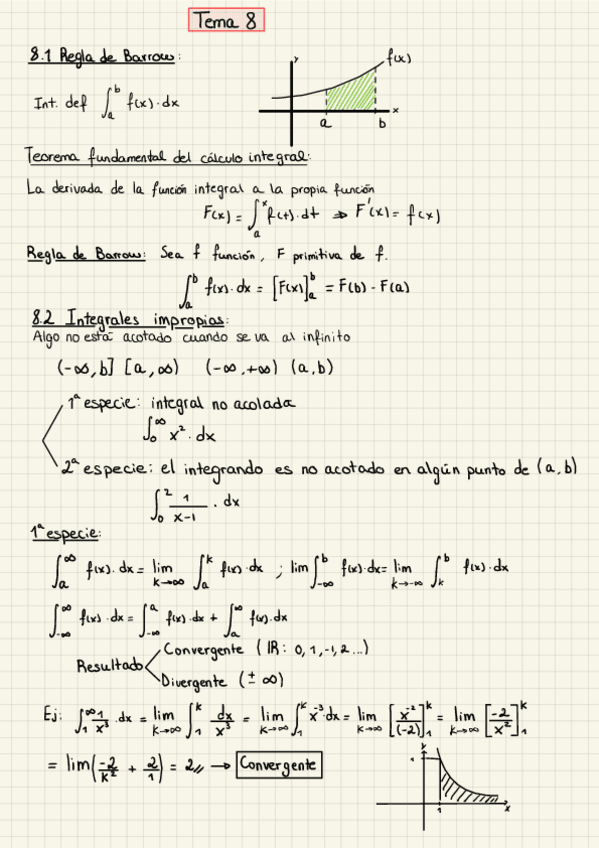 Tema 8
8.1 Regla de Barrow:
Int. def ∫_a^b f(x)·dx
y f(x) x a b
Teorema fundamental del cálculo integral:
La derivada de la función integral a la propia función
F(x) = ∫_a^x f(t)·dt ⇒ F'(x) = f(x)
Regla de Barrow: Sea f función, F primitiva de f.
∫_a^b f(x)·dx = [F(x)]_a^b = F(b) - F(a)
8.2 Integrales impropias:
Algo no está acotado cuando se va al infinito
(-∞,b] [a,∞) (-∞,+∞) (a,b)
1ª especie: integral no acolada
∫_0^∞ x²·dx
2ª especie: el integrando es no acotado en algún punto de (a,b)
∫_0^2 1/(x-1) · dx
1ª especie:
∫_a^∞ f(x)·dx = lim_{k→∞} ∫_a^k f(x)·dx ; lim ∫_{-∞}^b f(x)·dx = lim_{k→-∞} ∫_k^b f(x)·dx
∫_{-∞}^∞ f(x)·dx = ∫_{-∞}^a f(x)·dx + ∫_a^∞ f(x)·dx
Resultado
Convergente (IR: 0,1,-1,2...)
Divergente (± ∞)
Ej: ∫_1^∞ 1/x³ ·dx = lim_{k→∞} ∫_1^k dx/x³ = lim_{k→∞} ∫_1^k x^{-3}·dx = lim_{k→∞} [x^{-2}/(-2)]_1^k = lim_{k→∞} [-2/x²]_1^k
= lim(-2/k² + 2/1) = 2// → Convergente
y 1 1 x